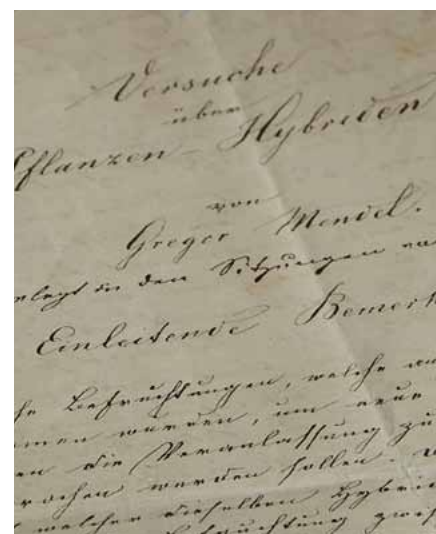 Versuche
über
Pflanzen-Hybriden
von
Gregor Mendel.
elegt in den Sitzungen vo
Einleitende Bemerk
he Befruchtungen, welche an
men wurden, um neue
en die Veranlassung zu
rochen werden sollen.
welcher dieselben Hybrid
fruchtung zwis